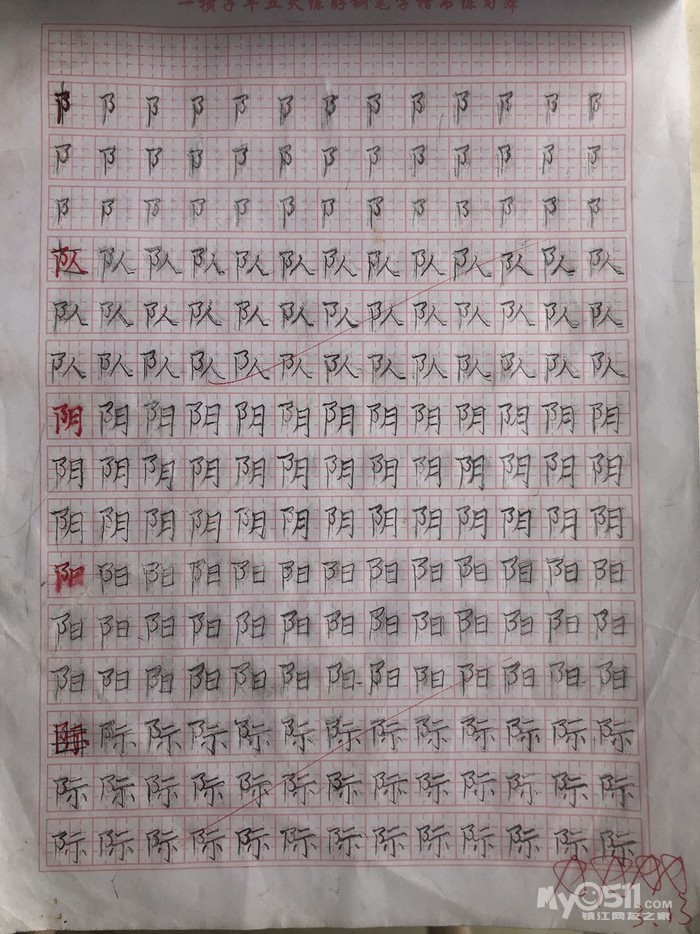 五天练好钢笔字楷书练习簿
阝阝阝阝阝阝阝阝阝阝阝阝阝
阝阝阝阝阝阝阝阝阝阝阝阝阝
阝阝阝阝阝阝阝阝阝阝阝阝阝
队队队队队队队队队队队队队
队队队队队队队队队队队队队
队队队队队队队队队队队队队
阴阴阴阴阴阴阴阴阴阴阴阴阴
阴阴阴阴阴阴阴阴阴阴阴阴阴
阴阴阴阴阴阴阴阴阴阴阴阴阴
阳阳阳阳阳阳阳阳阳阳阳阳阳
阳阳阳阳阳阳阳阳阳阳阳阳阳
阳阳阳阳阳阳阳阳阳阳阳阳阳
际际际际际际际际际际际际
际际际际际际际际际际际际际
际际际际际际际际际际际际际
My0511.COM
镇江网友之家